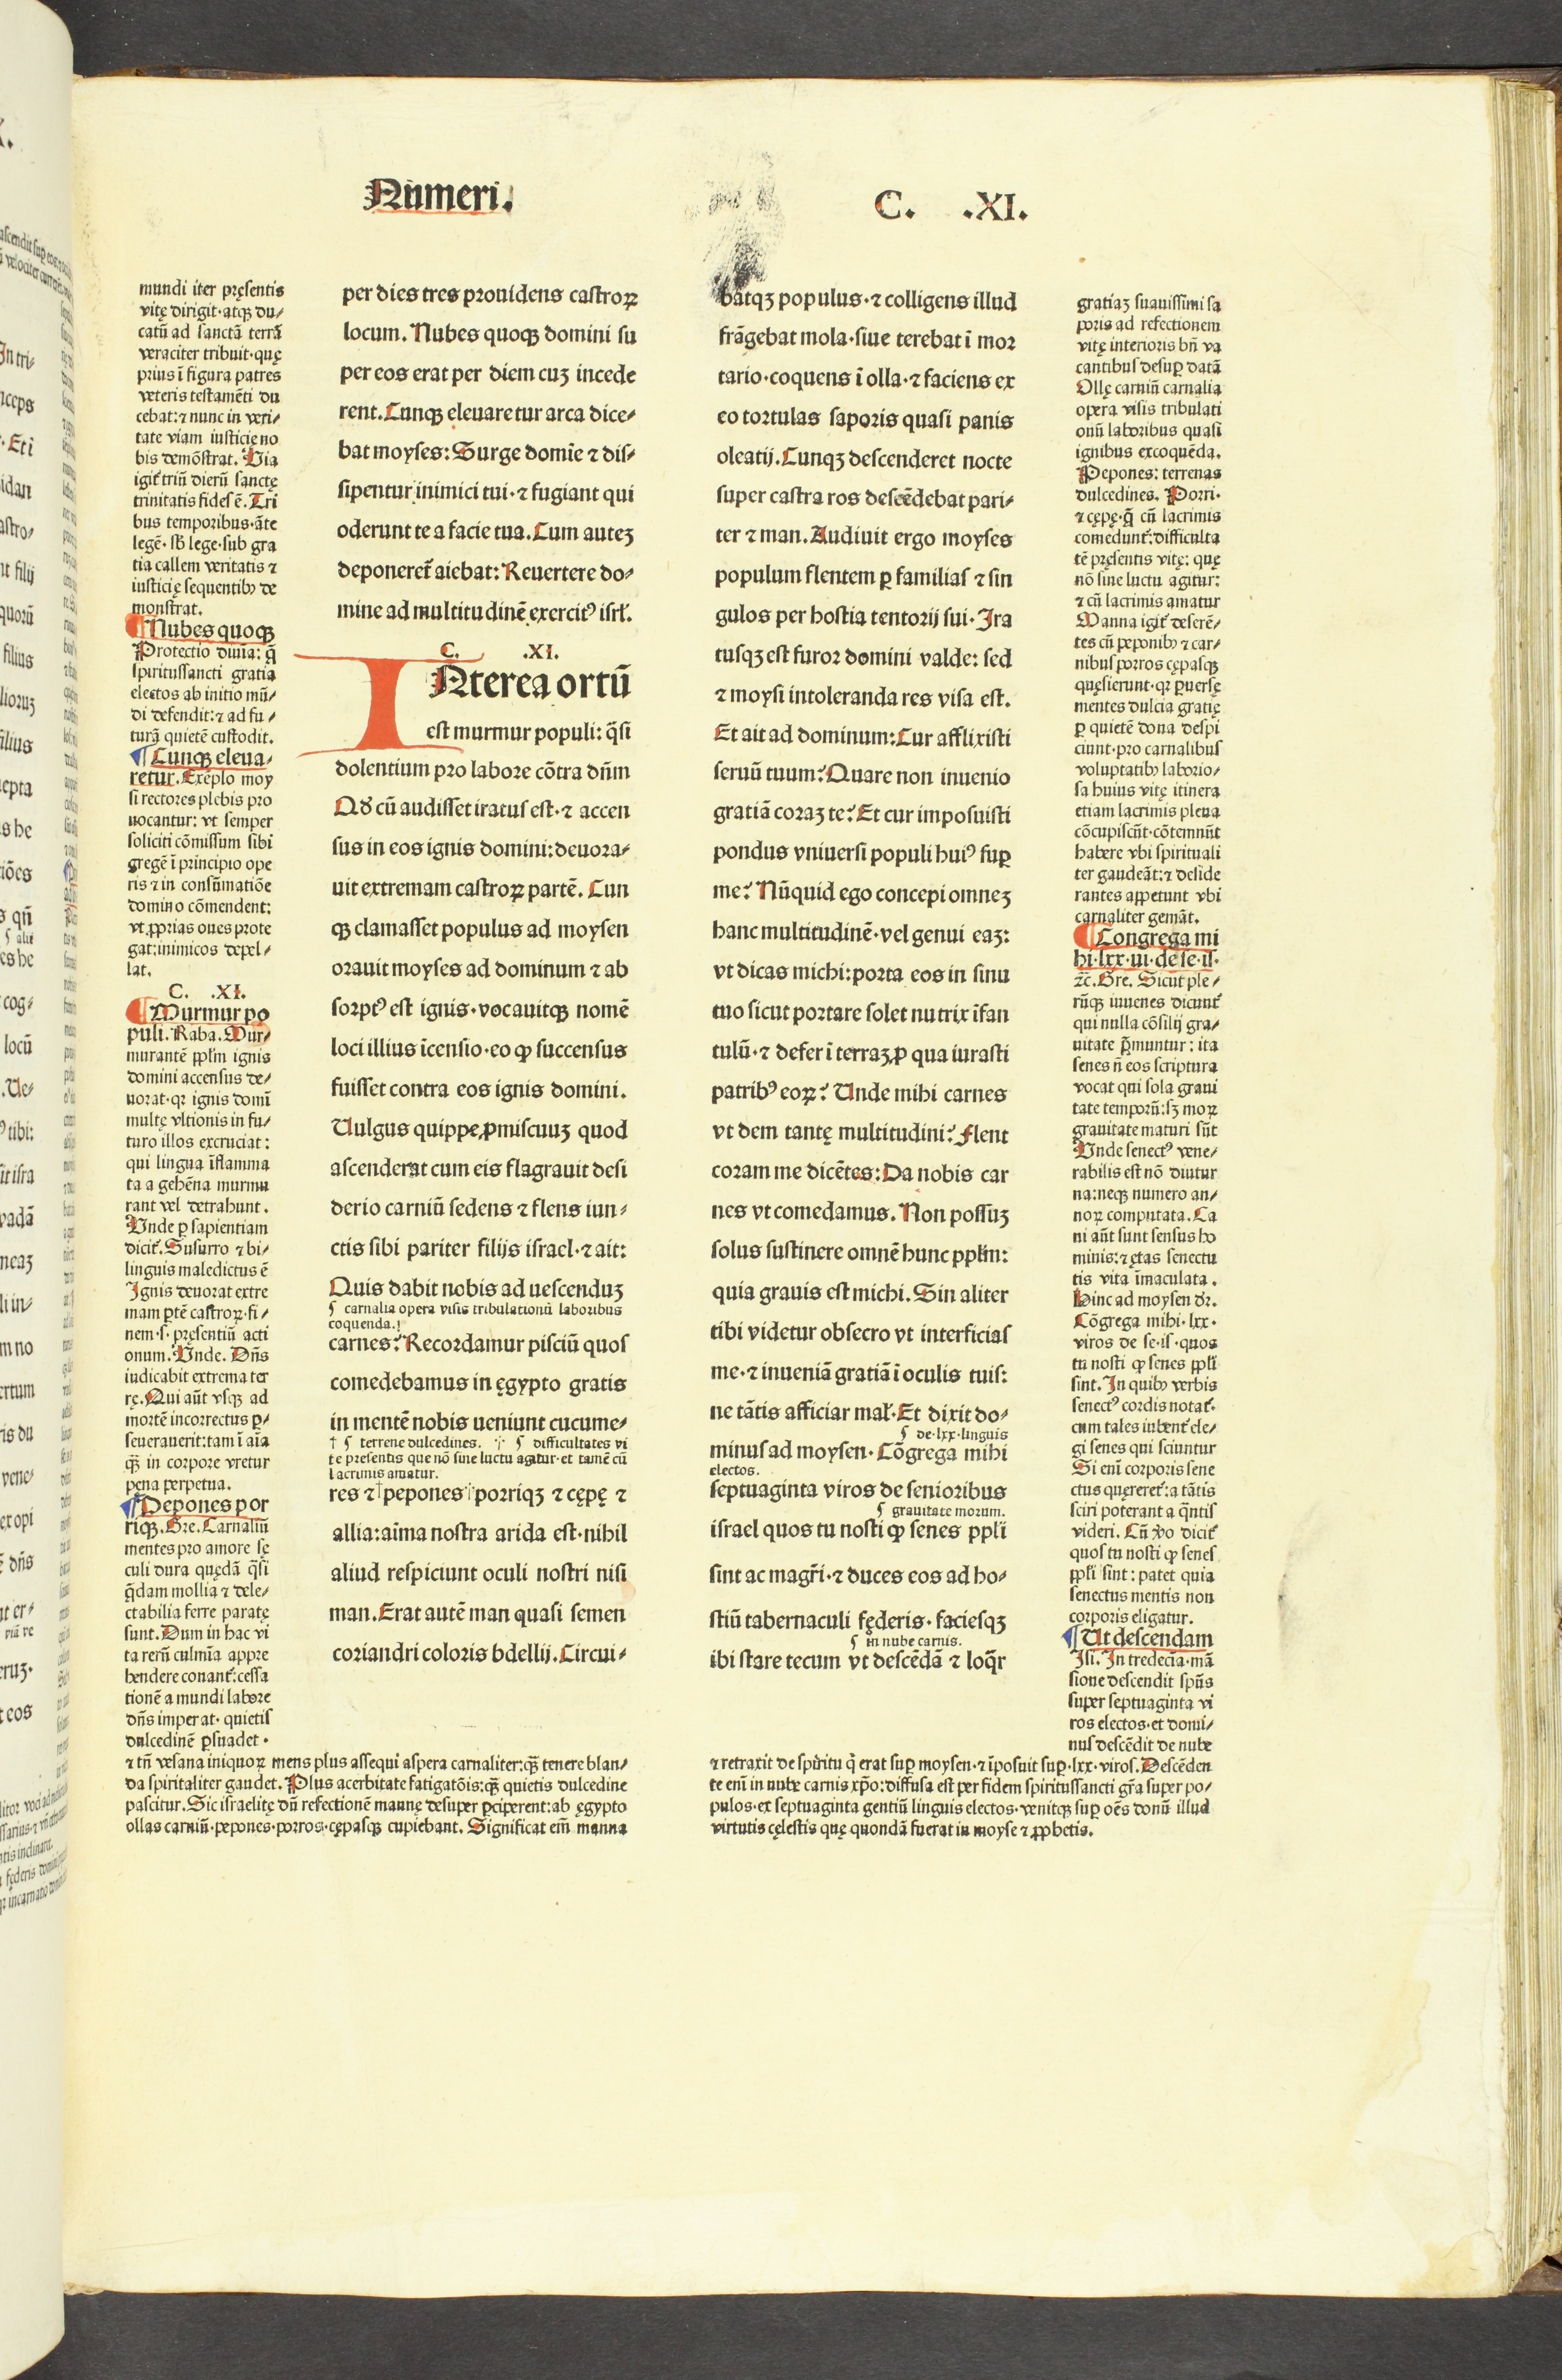 Numeri.
C. .XI.
mundi iter pręsentis
vitę dirigit·atqꝫ du⸗
catū ad sanctā terrā
veraciter tribuit·quę
prius ī figura patres
veteris testamēti du
cebat:⁊ nunc in veri⸗
tate viam iusticię no
bis demōstrat. Via
igit᷑ triū dierū sanctę
trinitatis fides ē. Tri
bus temporibus·āte
legē· sb lege·sub gra
tia callem veritatis ⁊
iusticię sequentibꝰ de
monstrat.
Nubes quoqꝫ
Protectio diuīa: q̄
spiritussancti gratia
electos ab initio mū⸗
di defendit:⁊ ad fu⸗
turā quietē custodit.
Cunqꝫ eleua⸗
retur. Exēplo moy
si rectores plebis pro
uocantur: vt semper
soliciti cōmissum sibi
gregē ī principio ope
ris ⁊ in consūmatiōe
domino cōmendent:
vt ꝓprias oues prote
gat:inimicos depel⸗
lat.
C. .XI.
Murmur po
puli. Raba. Mur⸗
murantē pplm̄ ignis
domini accensus de⸗
uorat·qꝛ ignis domī
multę vltionis in fu⸗
turo illos excruciat:
qui lingua īflamma
ta a gehēna murmu
rant vel detrahunt.
Vnde ꝑ sapientiam
dicit᷑. Susurro ⁊ bi⸗
linguis maledictus ē
Ignis deuorat extre
mam ꝑtē castroꝝ·fi⸗
nem·s· pręsentiū acti
onum. Vnde. Dn̄s
iudicabit extrema ter
rę. Qui aūt vsqꝫ ad
mortē incorrectus ꝑ⸗
seuerauerit:tam ī aīa
qꝫ̄ in corpore vretur
pena perpetua.
Pepones por
riqꝫ. Gre. Carnaliū
mentes pro amore sę
culi dura quędā q̄si
q̄dam mollia ⁊ dele⸗
ctabilia ferre paratę
sunt. Dum in hac vi
ta rerū culmīa appre
hendere conant᷑:cessa
tionē a mundi labore
dn̄s imperat· quietis
dulcedinē ꝑsuadet·
⁊ tn̄ vesana iniquoꝝ mens plus assequi aspera carnaliter:qꝫ̄ tenere blan⸗
da spiritaliter gaudet. Plus acerbitate fatigatōis:qꝫ̄ quietis dulcedine
pascitur. Sic israelitę dū refectionē mannę desuper ꝑciperent:ab ęgypto
ollas carniū·pepones·porros·cępasqꝫ cupiebant. Significat em̄ manna
per dies tres prouidens castroꝝ
locum. Nubes quoqꝫ domini su
per eos erat per diem cuꝫ incede
rent. Cunqꝫ eleuaretur arca dice⸗
bat moyses: Surge domīe ⁊ dis⸗
sipentur inimici tui·⁊ fugiant qui
oderunt te a facie tua. Cum auteꝫ
deponeret᷑ aiebat: Reuertere do⸗
mine ad multitudinē exercitꝰ isrl̄.
C. .XI.
INterea ortū
est murmur populi: q̄si
dolentium pro labore cōtra dn̄m
Qd̄ cū audisset iratus est·⁊ accen
sus in eos ignis domini:deuora⸗
uit extremam castroꝝ partē. Cun
qꝫ clamasset populus ad moysen
orauit moyses ad dominum ⁊ ab
sorptꝰ est ignis·vocauitqꝫ nomē
loci illius īcensio·eo ꝙ succensus
fuisset contra eos ignis domini.
Vulgus quippe ꝓmiscuuꝫ quod
ascenderat cum eis flagrauit desi
derio carniū sedens ⁊ flens iun⸗
ctis sibi pariter filijs israel·⁊ ait:
Quis dabit nobis ad uescenduꝫ
¶ carnalia opera visis tribulationū laboribus
coquenda.
carnes? Recordamur pisciū quos
comedebamus in ęgypto gratis
in mentē nobis ueniunt cucume⸗
† ¶ terrene dulcedines. ¶ difficultates vi
te presentis que nō sine luctu agitur·et tamē cū
lacrimis amatur.
res ⁊ pepones porriqꝫ ⁊ cępę ⁊
allia:aīma nostra arida est·nihil
aliud respiciunt oculi nostri nisi
man. Erat autē man quasi semen
coriandri coloris bdellij. Circui⸗
batqꝫ populus·⁊ colligens illud
frāgebat mola·siue terebat ī mor
tario·coquens ī olla·⁊ faciens ex
eo tortulas saporis quasi panis
oleatij. Cunqꝫ descenderet nocte
super castra ros descēdebat pari⸗
ter ⁊ man. Audiuit ergo moyses
populum flentem ꝑ familias ⁊ sin
gulos per hostia tentorij sui· Ira
tusqꝫ est furor domini valde: sed
⁊ moysi intoleranda res visa est.
Et ait ad dominum: Cur afflixisti
seruū tuum? Quare non inuenio
gratiā coraꝫ te? Et cur imposuisti
pondus vniuersi populi huiꝰ suꝑ
me? Nūquid ego concepi omneꝫ
hanc multitudinē·vel genui eaꝫ:
vt dicas michi: porta eos in sinu
tuo sicut portare solet nutrix īfan
tulū·⁊ defer ī terraꝫ ꝓ qua iurasti
patribꝰ eoꝝ? Unde mihi carnes
vt dem tantę multitudini? Flent
coram me dicētes: Da nobis car
nes vt comedamus. Non possuꝫ
solus sustinere omnē hunc pplm̄:
quia grauis est michi. Sin aliter
tibi videtur obsecro vt interficias
me·⁊ inueniā gratiā ī oculis tuis:
ne tātis afficiar mal᷑· Et dixit do⸗
¶ de·lxx·linguis
minus ad moysen· Cōgrega mihi
electos.
septuaginta viros de senioribus
¶ grauitate morum.
israel quos tu nosti ꝙ senes ppli
sint ac magr̄i·⁊ duces eos ad ho⸗
stiū tabernaculi fęderis· faciesqꝫ
¶ in nube carnis.
ibi stare tecum vt descēdā ⁊ loq̄r
gratiaꝫ suauissimi sa
poris ad refectionem
vitę interioris bn̄ va
cantibus desuꝑ datā
Ollę carniū carnalia
opera visis tribulati
onū laboribus quasi
ignibus excoquēda.
Pepones: terrenas
dulcedines. Porri·
⁊ cępę·q̄ cū lacrimis
comedunt᷑:difficulta
tē pręsentis vitę: quę
nō sine luctu agitur:
⁊ cū lacrimis amatur
Manna igit᷑ deserē⸗
tes cū peponibꝰ ⁊ car⸗
nibus porros cępasqꝫ
quęsierunt·qꝛ ꝑuersę
mentes dulcia gratię
ꝑ quietē dona despi
ciunt·pro carnalibus
voluptatibꝰ laborio⸗
sa huius vitę itinera
etiam lacrimis plena
cōcupiscūt·cōtemnūt
habere vbi spirituali
ter gaudeāt:⁊ deside
rantes appetunt vbi
carnaliter gemāt.
Congrega mi
hi·lxx·ui·de se·is·
⁊c̄. Gre. Sicut ple⸗
rūqꝫ iuuenes dicunt᷑
qui nulla cōsilij gra⸗
uitate p̄muntur: ita
senes n̄ eos scriptura
vocat qui sola graui
tate temporū:sꝫ moꝝ
grauitate maturi sūt
Vnde senectꝰ vene⸗
rabilis est nō diutur
na:neqꝫ numero an⸗
noꝝ computata. Ca
ni aūt sunt sensus ho
minis:⁊ ętas senectu
tis vita īmaculata.
Hinc ad moysen dr̄.
Cōgrega mihi·lxx·
viros de se·is·quos
tu nosti ꝙ senes ppli
sint. In quibꝰ verbis
senectꝰ cordis notat᷑·
cum tales iubent᷑ ele⸗
gi senes qui sciuntur
Si eni corporis sene
ctus quęreret᷑:a tātis
sciri poterant a q̄ntis
videri. Cū v̄o dicit᷑
quos tu nosti ꝙ senes
ppli sint: patet quia
senectus mentis non
corporis eligatur.
Ut descendam
Isi. In tredecīa·mā
sione descendit spūs
super septuaginta vi
ros electos·et domi⸗
nus descēdit de nube
⁊ retraxit de spiritu q̄ erat suꝑ moysen·⁊ īposuit suꝑ·lxx·viros. Descēden
te enī in nube carnis xp̄o:diffusa est per fidem spiritussancti gr̄a super po⸗
pulos·ex septuaginta gentiū linguis electos·venitqꝫ suꝑ oēs donū illud
virtutis cęlestis quę quondā fuerat in moyse ⁊ ꝓphetis.